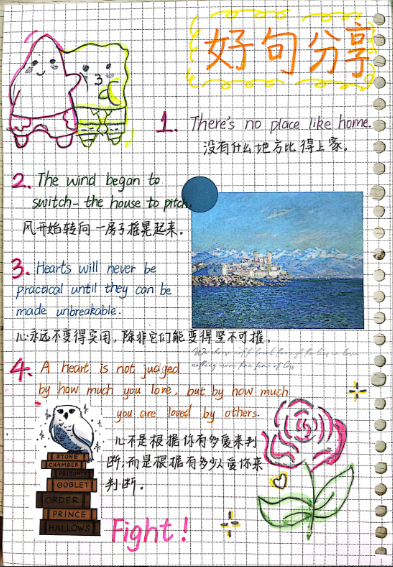 好句分享
1. There's no place like home.
没有什么地方比得上家。
2. The wind began to
switch - the house to pitch.
风开始转向 一房子摇晃起来。
3. Hearts will never be
practical until they can be
made unbreakable.
心永远不要得实用，除非它们能变得坚不可摧。
4. A heart is not judged
by how much you love, but by how much
you are loved by others.
心不是根据你有多爱来判
断；而是根据有多少人爱你来
判断。
STONE
CHAMBER
GOBLET
ORDER
PRINCE
HALLOWS
Fight!